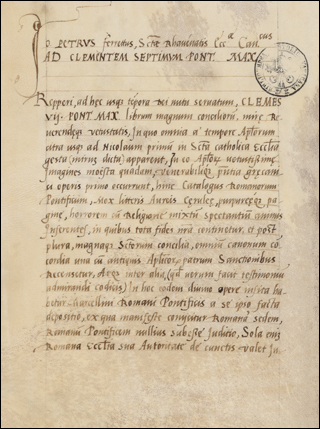 Io PETRVS ferrettus, Sctæ Rhauenatis Eccæ Can,cus
AD CLEMENTEM SEPTIMVM PONT MAX
Repperi, ad hec usq; tēpora Dei nutu seruatum, CLEMĒS
VII. PONT. MAX. librum magnum conciliorū, mire Re,
uerendeq; uetustatis, In quo omnia a tempore Aptorum
citra usq; ad Nicolaum primū in Scta catholica Ecclia
gesta (mirū dictu) apparent, In eo Aptorū uetustissime
Imagines moesta quadam, uenerabiliq; pictura grecam
in operis primo occurrunt, hinc Catalogus Romanorum
Pontificum, Mox literis Aureis Ceruleis, purpureisq; pa,
gine, horrorem cū Religione mixtū spectantiū animis
Inferentes, in quibus tota fides nrā continetur, et post
plura, magnaq; Sctorum concilia, omniū canonum cō
cordia una cū antiquis Aplicorū patrum Sanctionibus
Recensetur, Atq; inter alia (quā uerum facit testimoniū
admirandi codicis) In hoc eodem diuino opere inserta ha,
betur Marcellini Romani Pontificis a se ipso facta
depositio, ex qua manifeste conijcitur Romanā sedem,
Romanū Pontificem nullius subesse Iuditio, Sola enī
Romana Ecclia sua Autoritate de cunctis ualet Iu,